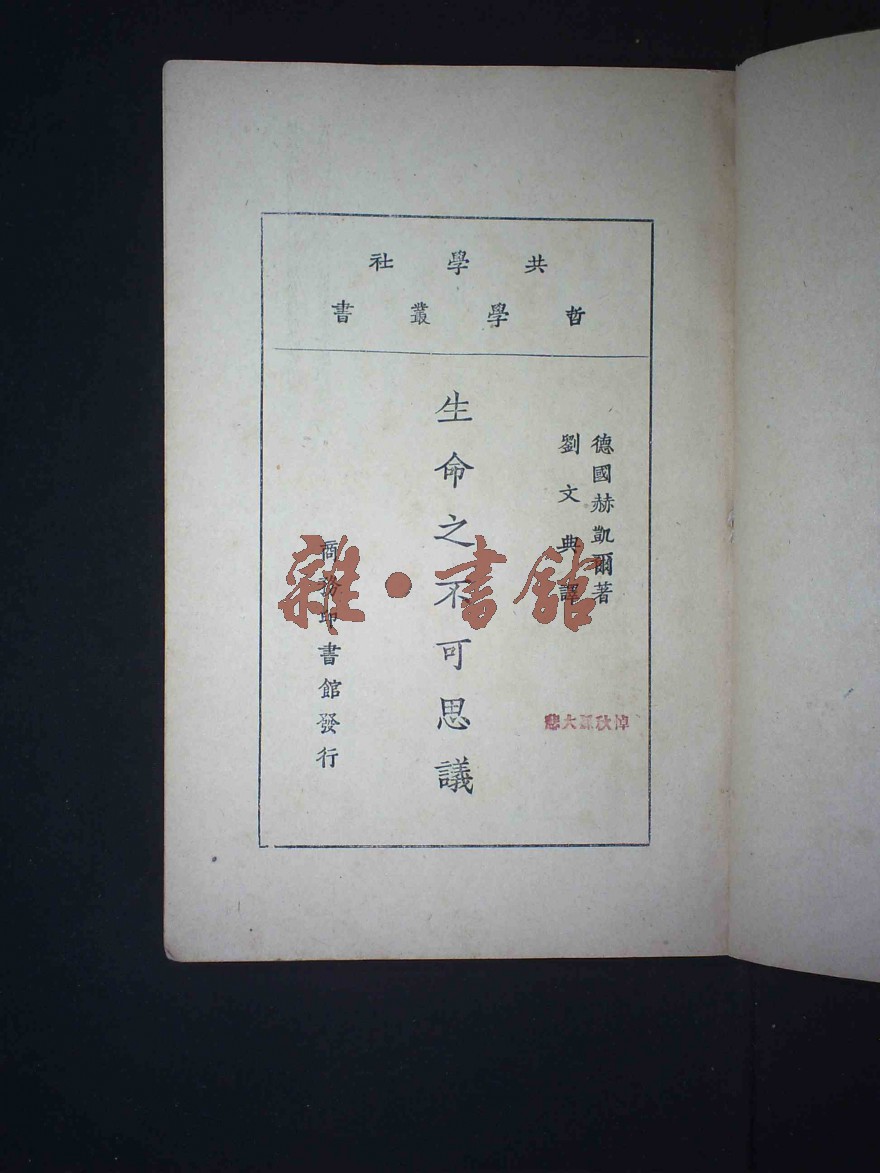 共學社
哲學叢書
德國赫凱爾著
劉文典譯
生命之不可思議
商務印書館發行
雜·書館